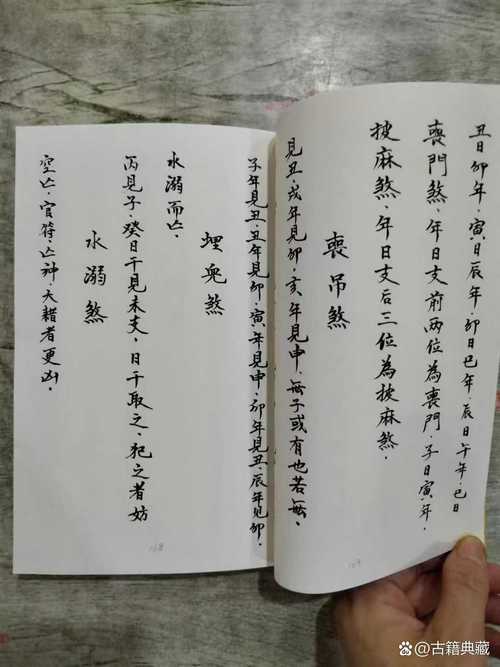 空亡、官符、亡神、大耗者更凶.
水溺煞
丙見子、癸日干見未支、日干取之、犯之者妨
水溺而亡、
埋兒煞
子年見丑、丑年見卯、寅年見申、卯年見丑、辰年見卯.
見丑、戌年見卯、亥年見申、無子或有也若無.
喪吊煞
披麻煞、年日支后三位為披麻煞.
喪門煞、年日支前兩位為喪門、子日寅年、
丑日卯年、寅日辰年、卯日巳年、辰日午年、巳日
古籍典藏